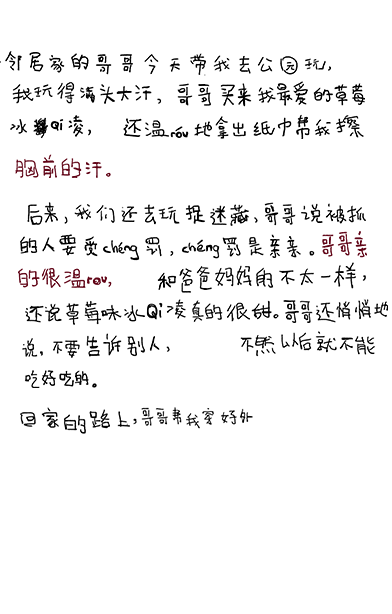 邻居家的哥哥今天带我去公园玩，
我玩得满头大汗，哥哥买来我最爱的草莓
冰Qi凌， 还温róu地拿出纸巾帮我擦
胸前的汗。
后来，我们还去玩捉迷藏，哥哥说被抓
的人要受chéng罚，chéng罚是亲亲。哥哥亲
的很温rou， 和爸爸妈妈的不太一样，
还说草莓味冰Qi凌真的很甜。哥哥还悄悄地
说，不要告诉别人， 不然以后就不能
吃好吃的。
回家的路上，哥哥帮我穿好外